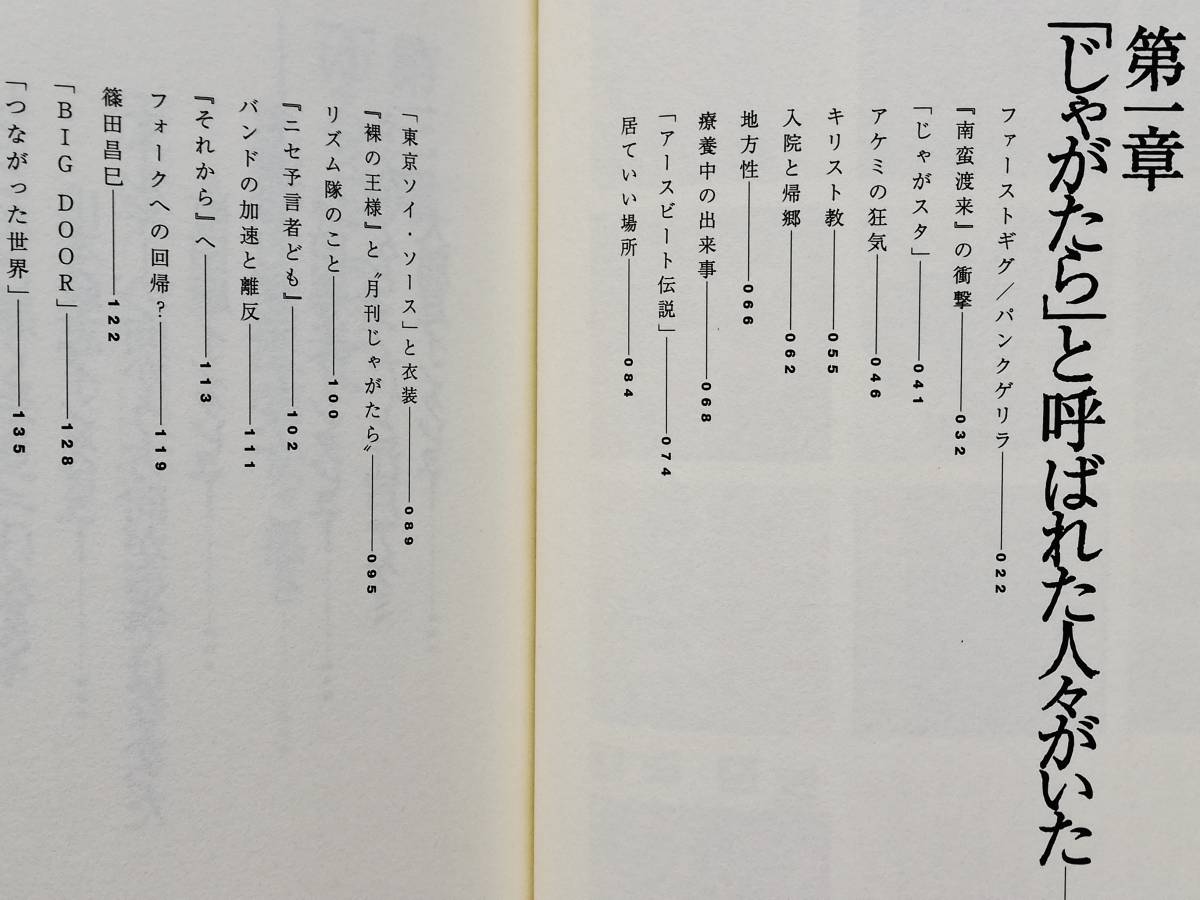 第一章
「じゃがたら」と呼ばれた人々がいた――
ファーストギグ／パンクゲリラ――022
『南蛮渡来』の衝撃――032
「じゃがスタ」――041
アケミの狂気――046
キリスト教――055
入院と帰郷――062
地方性――066
療養中の出来事――068
「アースビート伝説」――074
居ていい場所――084
「東京ソイ・ソース」と衣装――089
『裸の王様』と〝月刊じゃがたら〟――095
リズム隊のこと――100
『ニセ予言者ども』――102
バンドの加速と離反――111
『それから』へ――113
フォークへの回帰？――119
篠田昌已――122
「BIG DOOR」――128
「つながった世界」――135